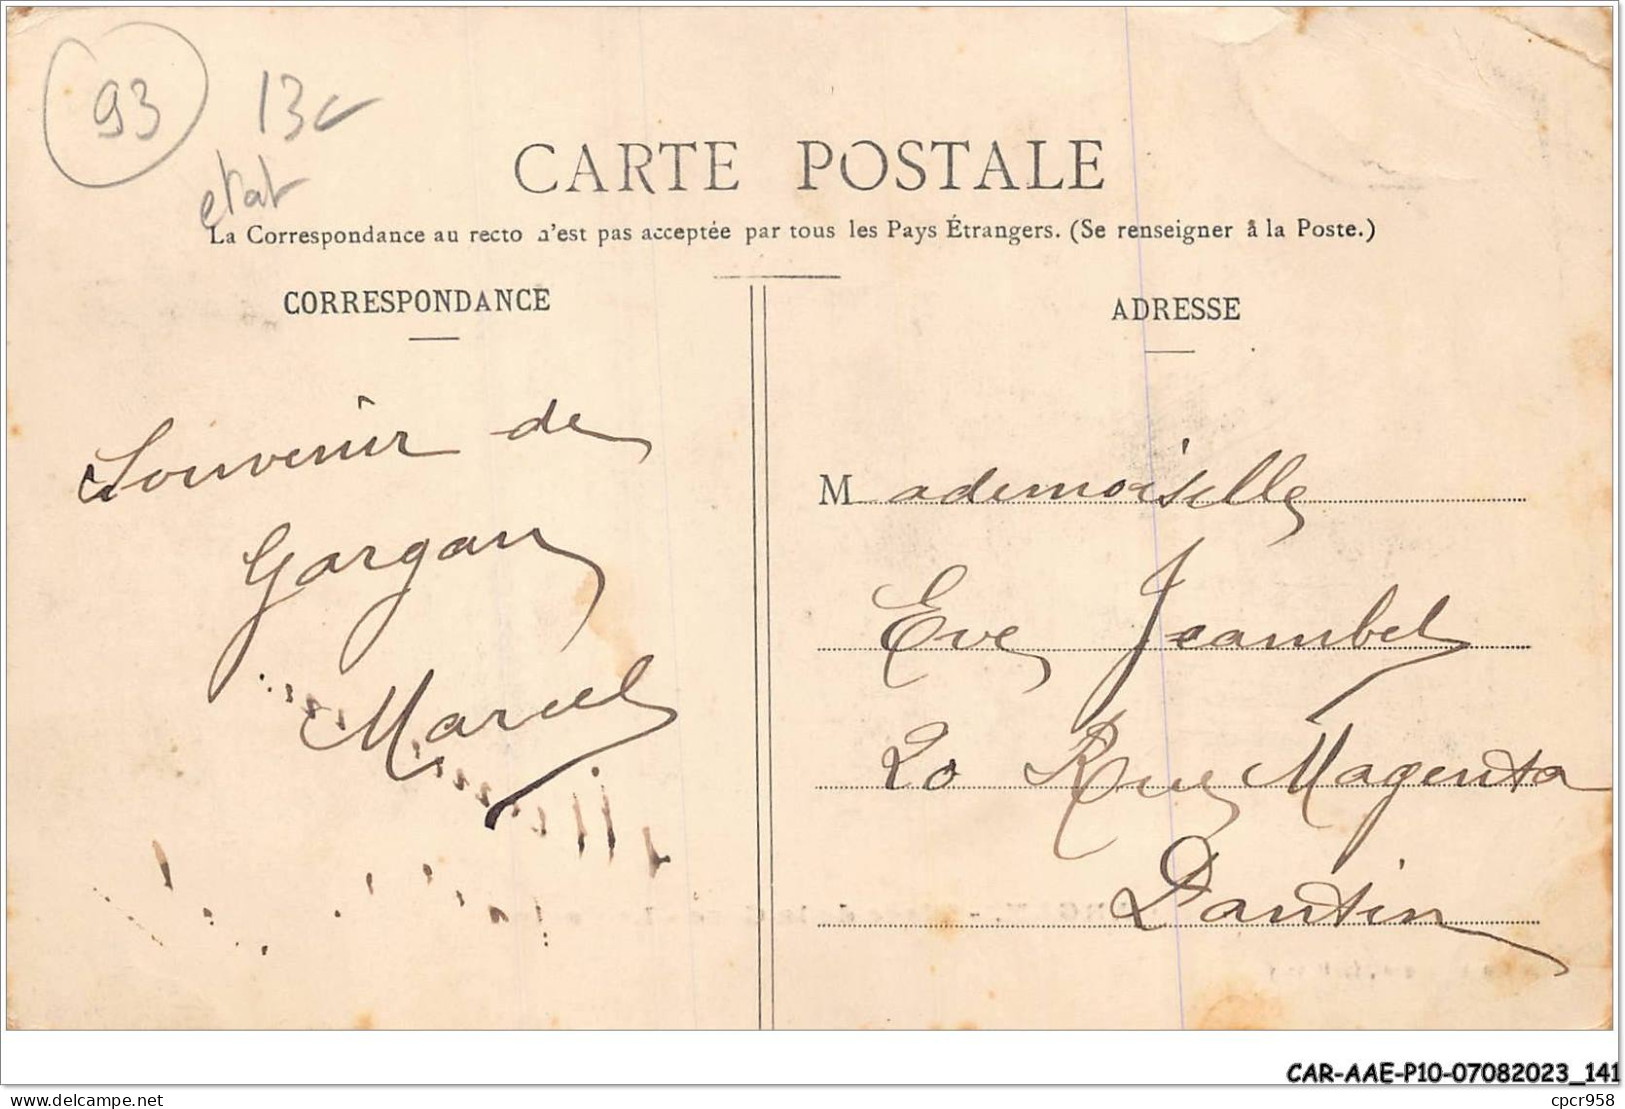 93 13€
etat
CARTE POSTALE
La Correspondance au recto n'est pas acceptée par tous les Pays Étrangers. (Se renseigner à la Poste.)
CORRESPONDANCE
Souvenir de
Gargan
Marcel
ADRESSE
Mademoiselle
Eve Jeambel
20 Rue Magenta
Pantin
CAR-AAE-P10-07082023_141
delcampe.net
cpcr958